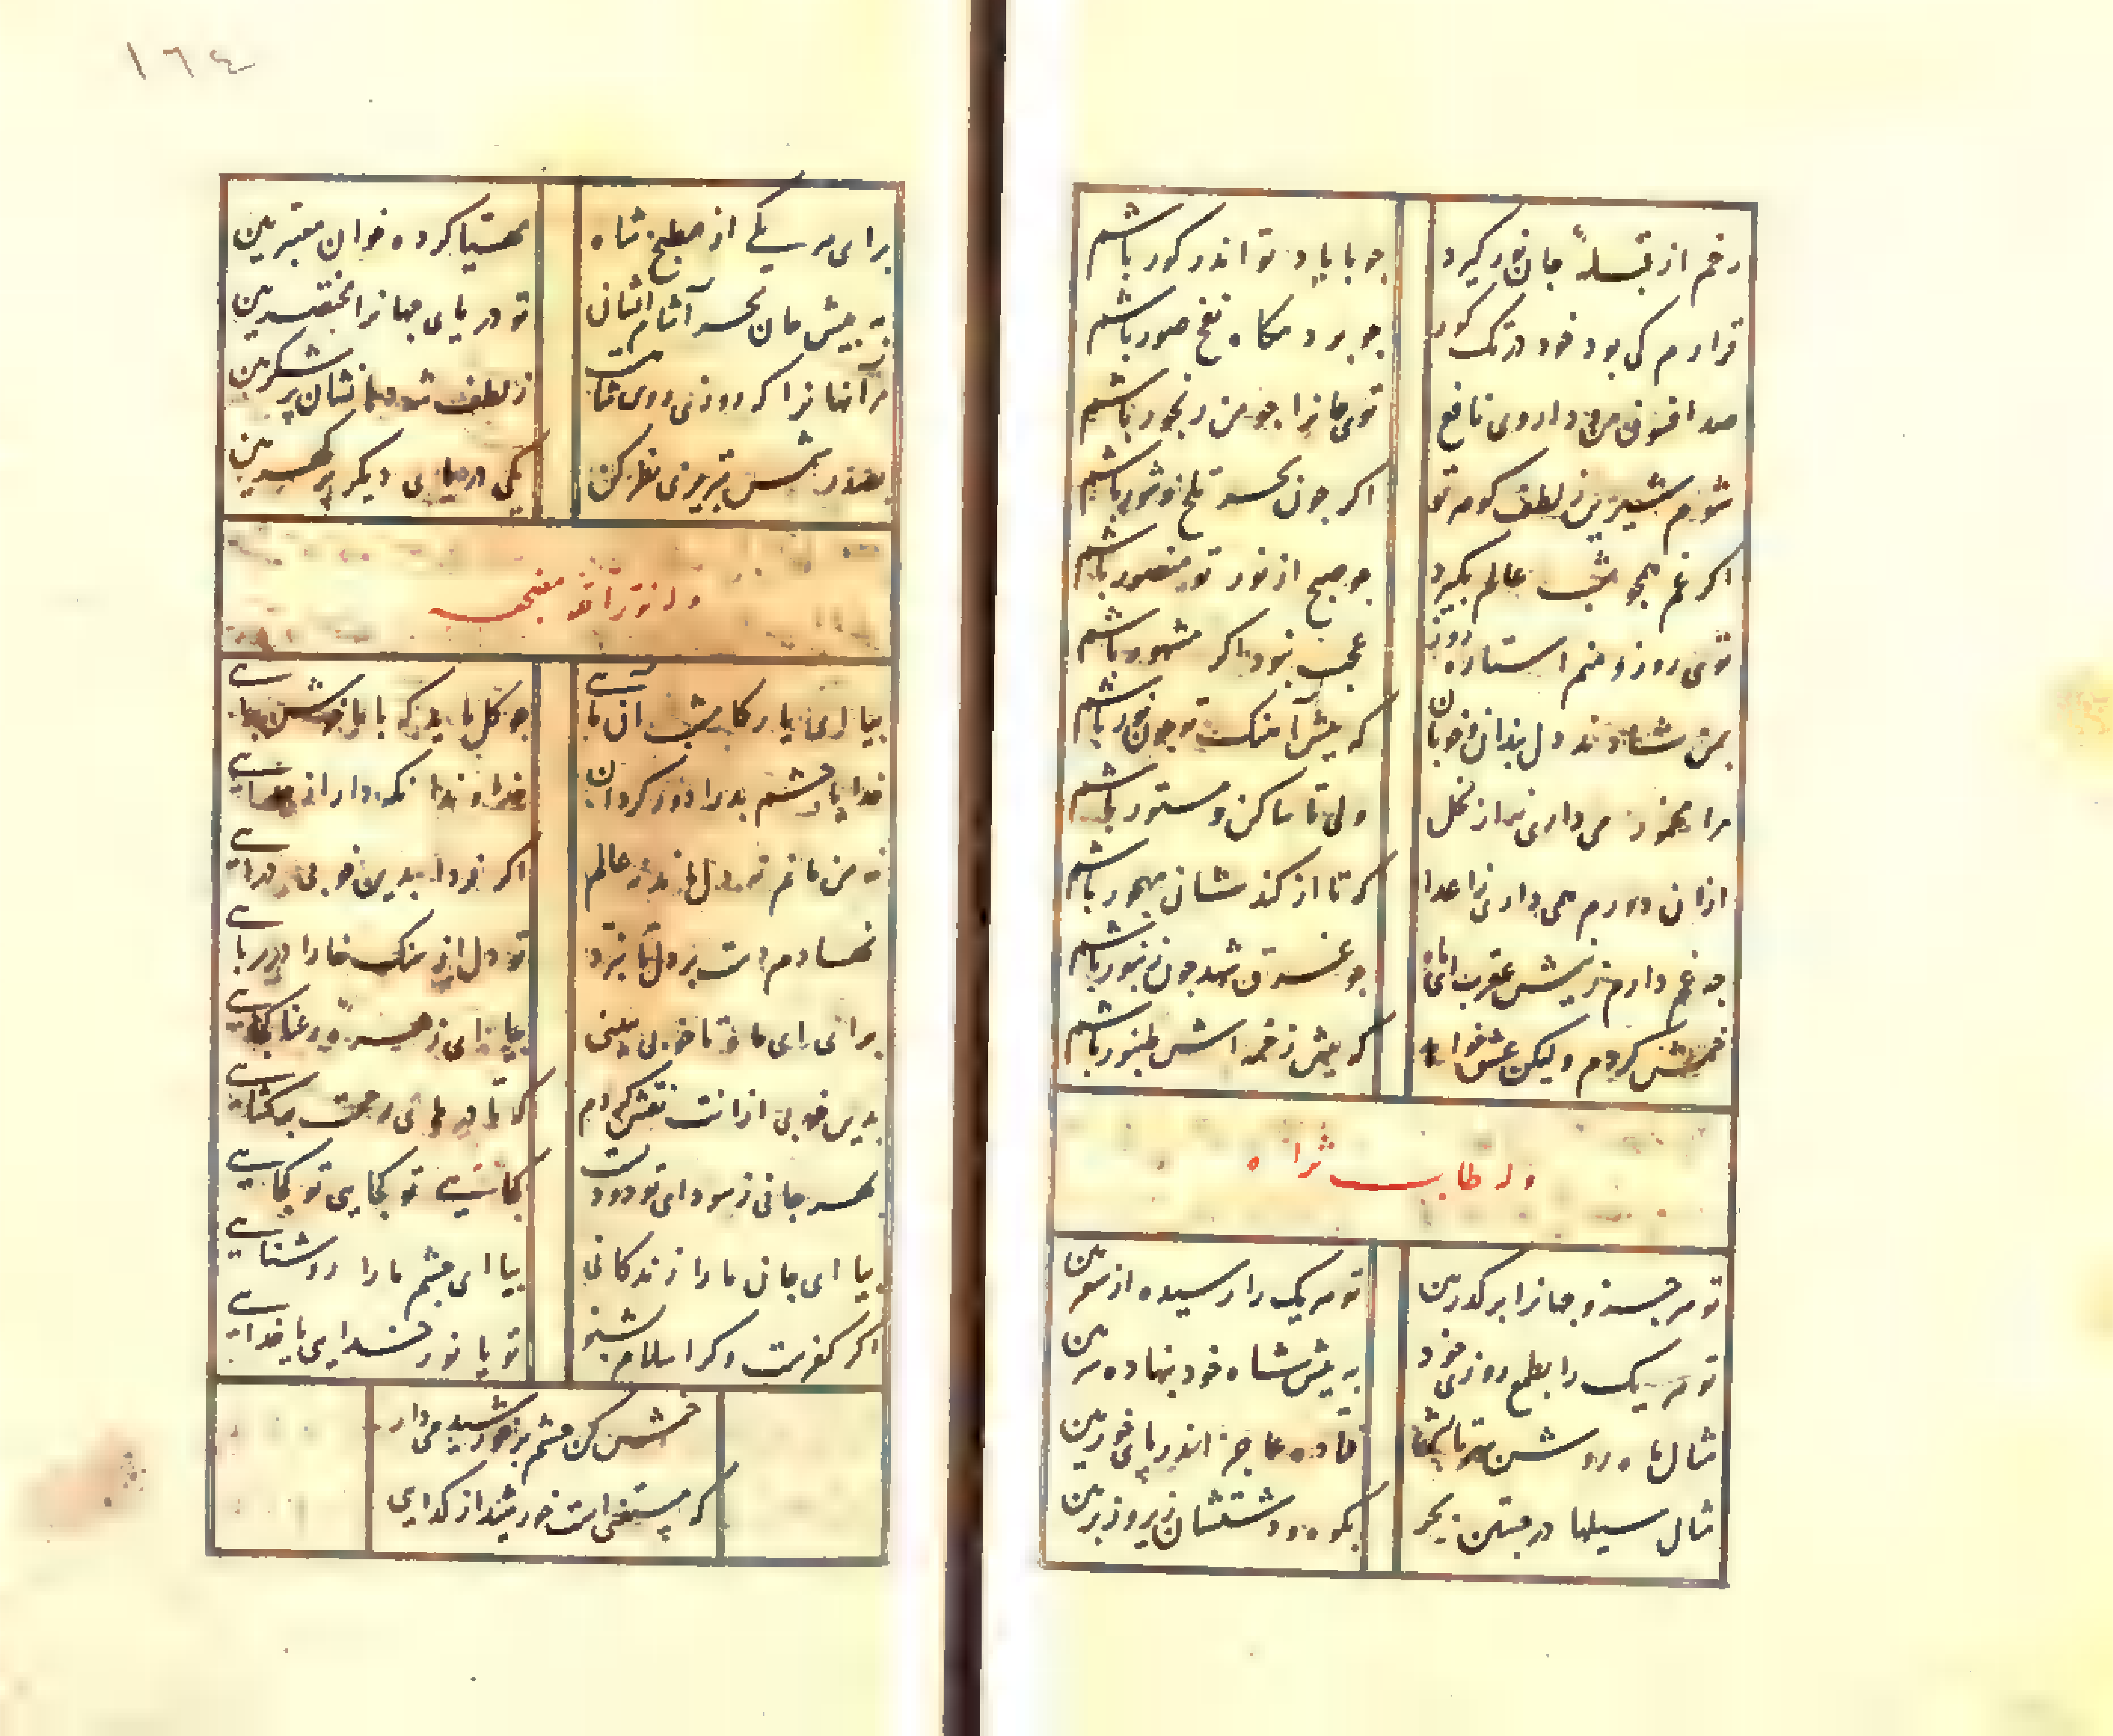 رخم از قبلهٔ جان نور گیرد
چو با یاد تو اندر کور باشم
قرارم کی بود خود در تک کور
چو بر دمکاه نفخ صور باشم
صد افسون و داروی نافع
توی جانرا چو من رنجور باشم
شوم شیرین ز لطف کوهر تو
اکر چون بحر تلخ و شور باشم
اکر غم همچو شب عالم بکیرد
چو صبح از نور تو منصور باشم
توی روز و منم استاره روز
عجب نبود اکر مشهور باشم
بمن شادند دل بندان و خوبان
که پیش آهنک تو چون نور باشم
مرا مخمور می داری نه از بخل
ولی تا ساکن و مستور باشم
ازان دورم همی داری ز اعدا
که تا از کندشان مهجور باشم
چه غم دارم ز نیش عقرب ای ماه
چو غرق شهد چون زنبور باشم
خمش کردم ولیکن عشق خواهد
که پیش زخمه اش طنبور باشم
وله طاب ثراه
تو هر جزو جهانرا بر کذر بین
تو هر یک را رسیده از سفر بین
تو هر یک را بطمع روزی خود
به پیش شاه خود بنهاده سر بین
مثال ماه روشن
فتاده عاجز اندر پای خور بین
مثال سیلها در جستن بحر
بکوه و دشتشان زیر و زبر بین
١٦٤
برای هر یکی از مطبخ شاه
مهیا کرده خوان معتبر بین
به پیش جان بحر آشام ایشان
تو دریای جهانرا مختصر بین
مر آنها را که روزی روی شاهست
ز لطف شه دهانشان پر شکر بین
بعذر شمس تبریزی نظر کن
یکی دریای دیکر پر کهر بین
وله نور الله مضجعه
بیا ای یار کامشب آن مایی
چو کل باید که با ما خوش بیایی
خدایا چشم بد را دور کردان
خداوندا نکه دار از جدایی
نه من مانم نه دل ماند نه عالم
اکر فردا بدین خوبی درآیی
نهادم دست بر دل تا نپرد
تو دل از سنک خارا در ربایی
برای جان ما تا خوبی بینی
بیا ای زهره و رعنا کجایی
بدین خوبی ازانت نقش کردم
که تا درهای رحمت برکشایی
بهر جانی ز سودای تو دودست
کجایی تو کجایی تو کجایی
بیا ای جانی ما را زندکانی
بیا ای چشم ما را روشنایی
اکر کفرست وکر اسلام بشنو
تو یا نور خدایی یا خدایی
خمش کن چشم بر خورشید می دار
که مستغنی است خورشید از کدایی